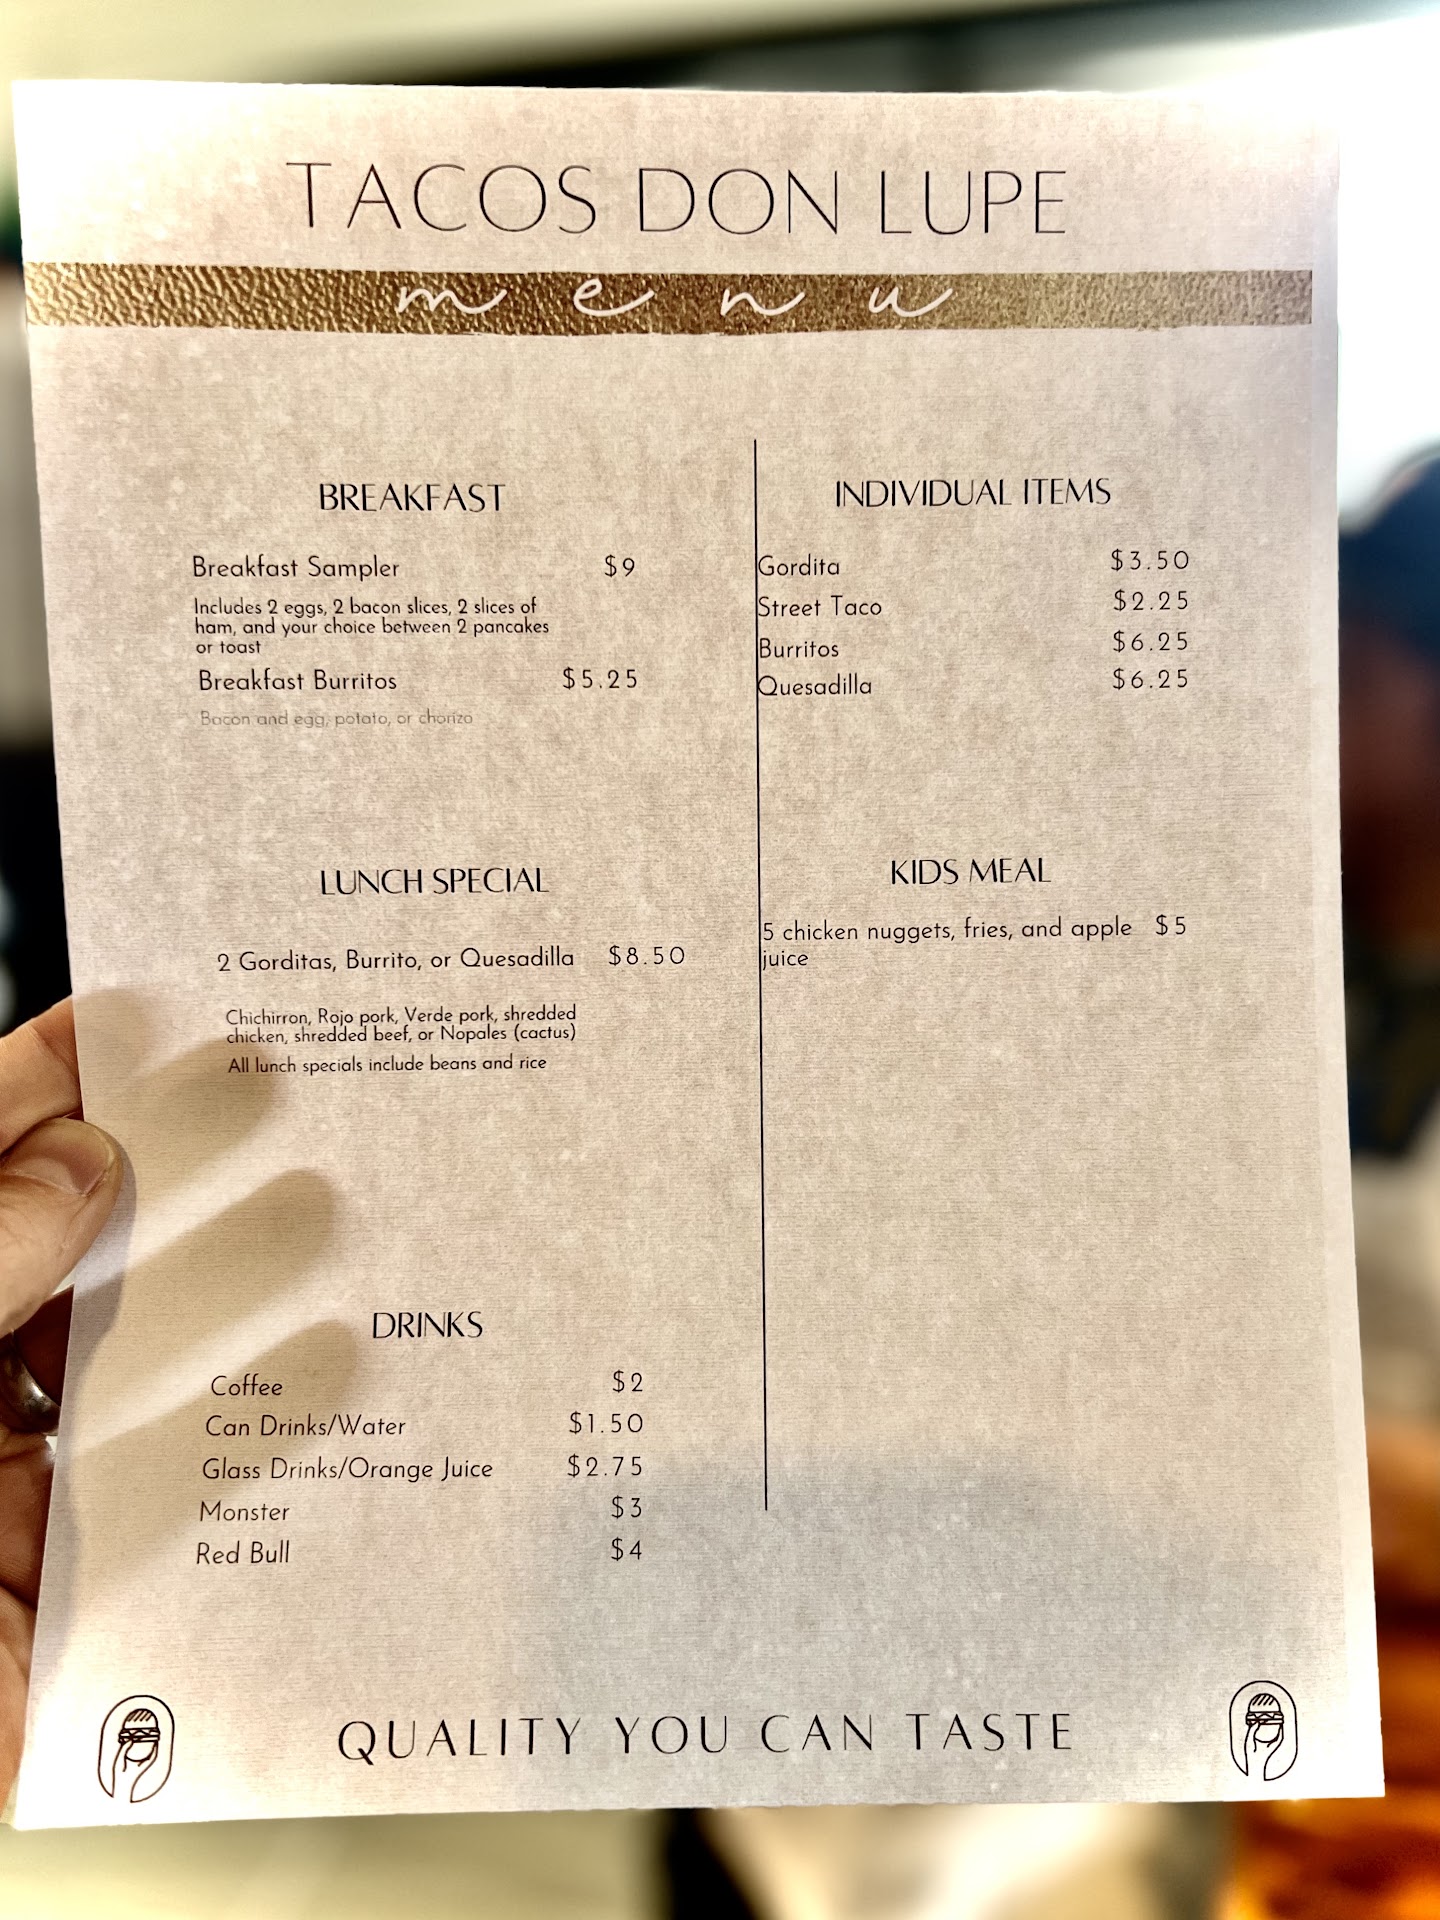 TACOS DON LUPE
menu
BREAKFAST
Breakfast Sampler $9
Includes 2 eggs, 2 bacon slices, 2 slices of
ham, and your choice between 2 pancakes
or toast
Breakfast Burritos $5.25
Bacon and egg, potato, or chorizo
LUNCH SPECIAL
2 Gorditas, Burrito, or Quesadilla $8.50
Chichirron, Rojo pork, Verde pork, shredded
chicken, shredded beef, or Nopales (cactus)
All lunch specials include beans and rice
DRINKS
Coffee $2
Can Drinks/Water $1.50
Glass Drinks/Orange Juice $2.75
Monster $3
Red Bull $4
INDIVIDUAL ITEMS
Gordita $3.50
Street Taco $2.25
Burritos $6.25
Quesadilla $6.25
KIDS MEAL
5 chicken nuggets, fries, and apple $5
juice
QUALITY YOU CAN TASTE